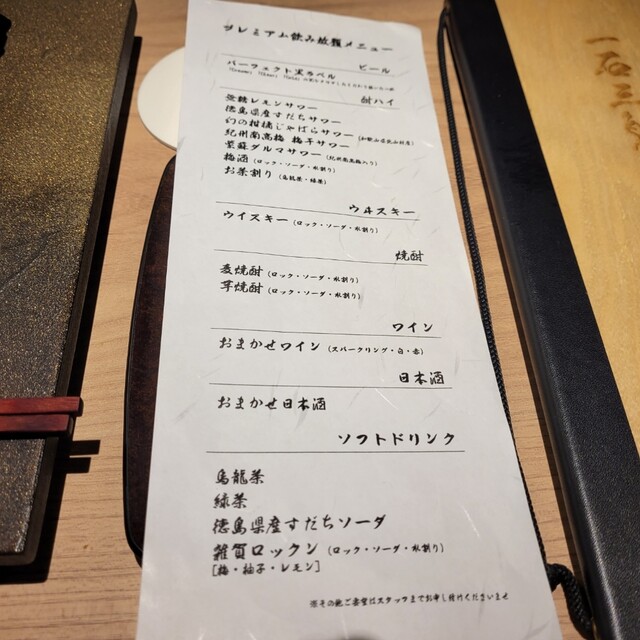 プレミアム飲み放題メニュー
ビール
パーフェクト黒ラベル
酎ハイ
強髄レモンサワー
徳島県産すだちサワー
幻の柑橘じゃばらサワー (和歌山県北山村産)
紀州南高梅 梅干サワー
紫蘇ダルマサワー (紀州南高梅入り)
梅酒 (ロック・ソーダ・水割り)
お茶割り (烏龍茶・緑茶)
ウヰスキー
ウイスキー (ロック・ソーダ・水割り)
焼酎
麦焼酎 (ロック・ソーダ・水割り)
芋焼酎 (ロック・ソーダ・水割り)
ワイン
おまかせワイン (スパークリング・白・赤)
日本酒
おまかせ日本酒
ソフトドリンク
烏龍茶
緑茶
徳島県産すだちソーダ
雑賀ロックン (ロック・ソーダ・水割り)
[梅・柚子・レモン]
※その他ご要望はスタッフまでお申し付けくださいませ